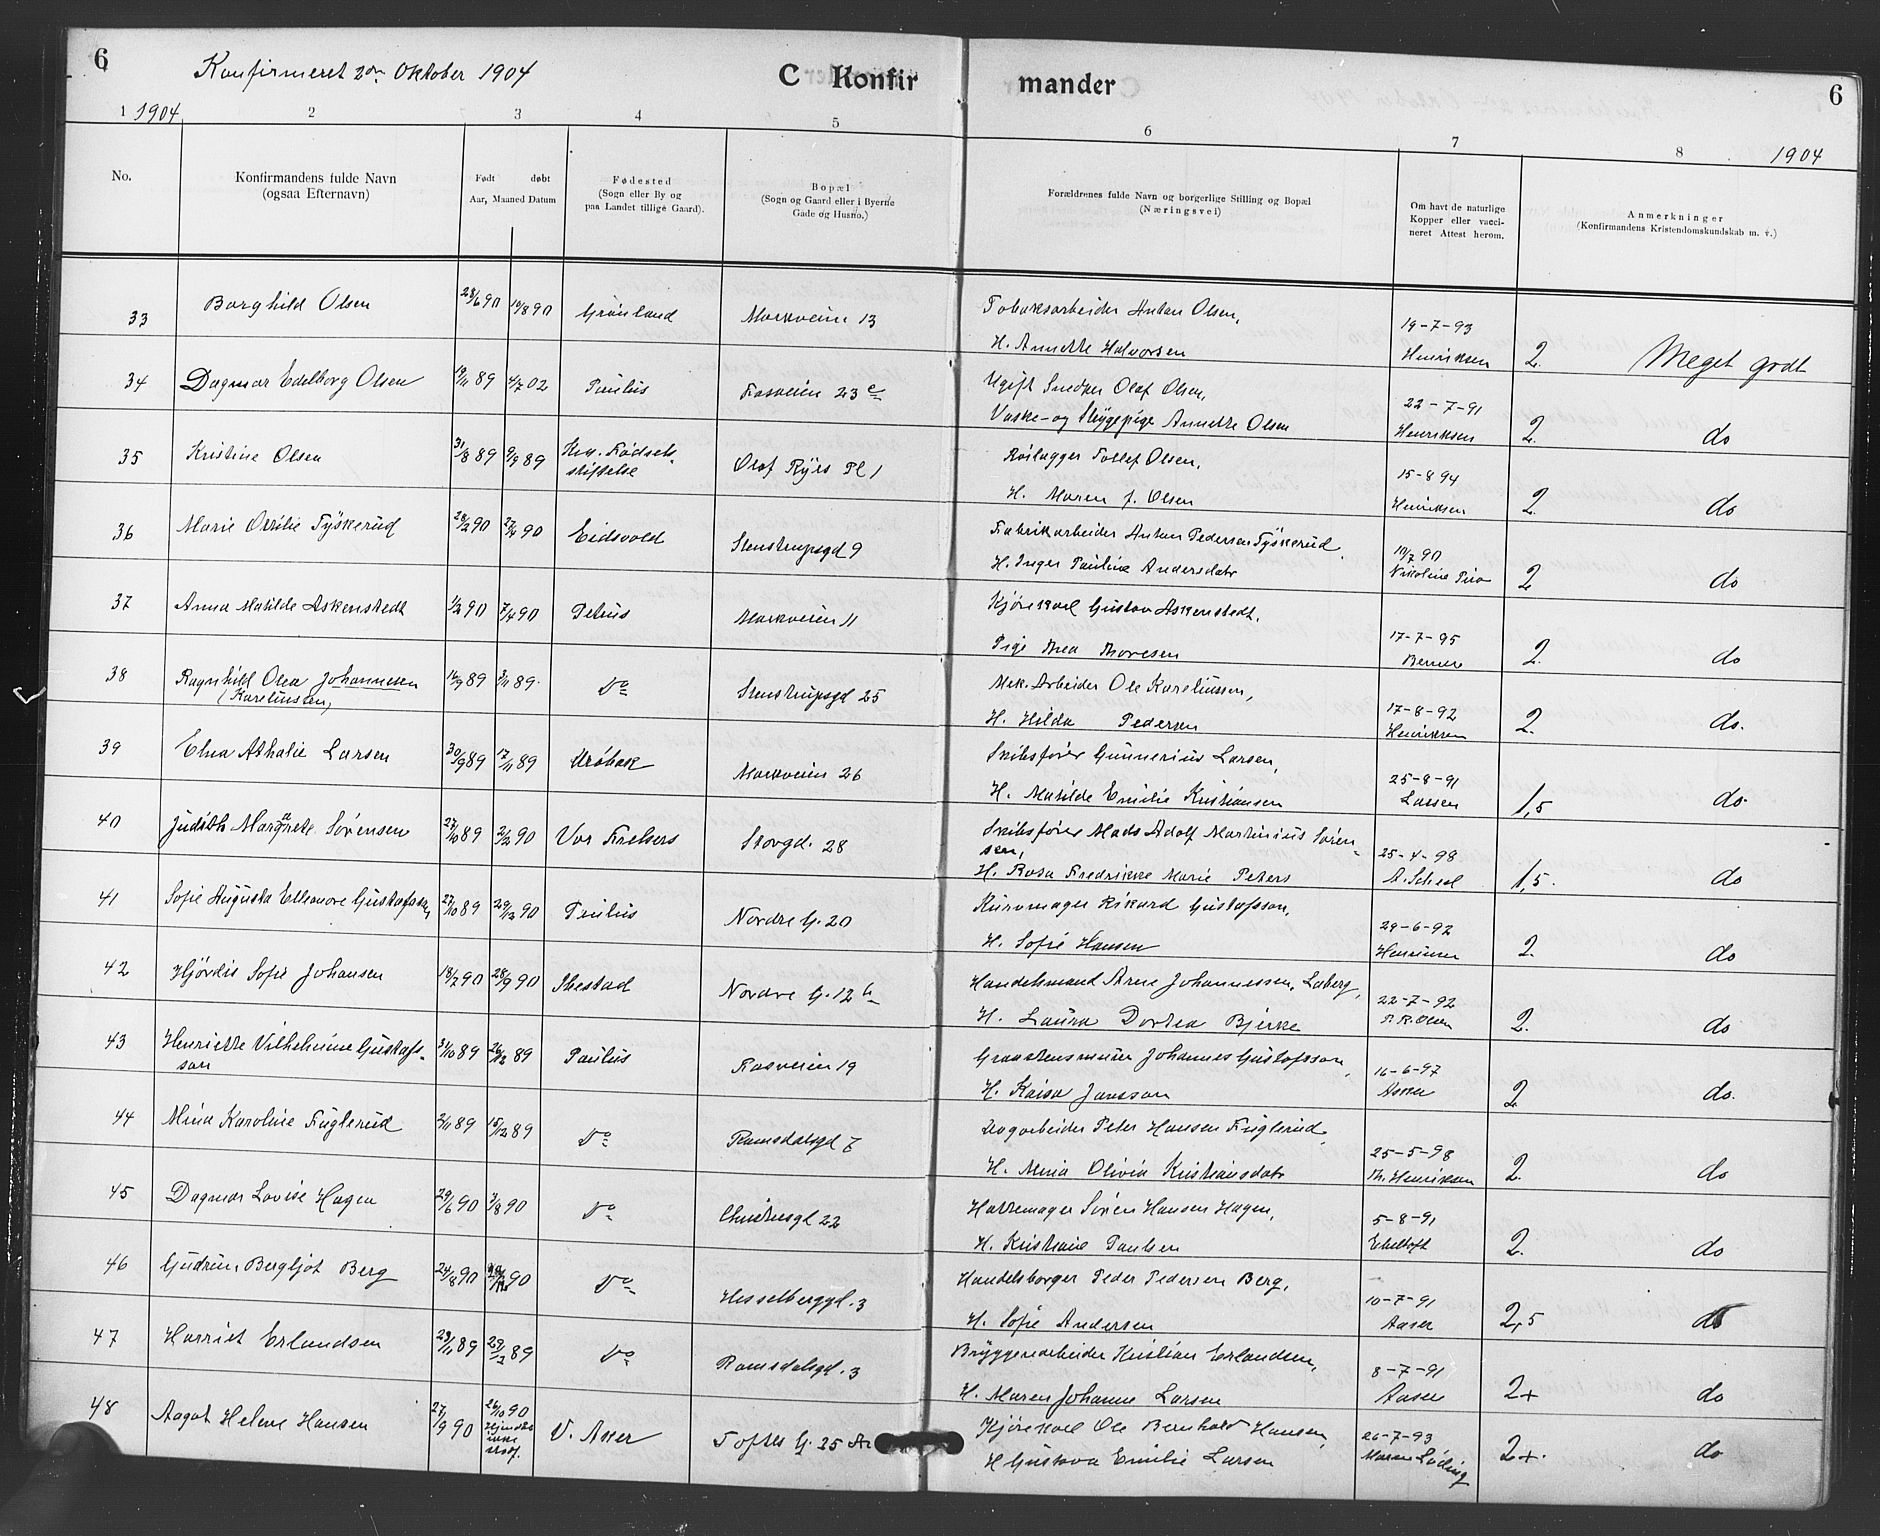 6
Konfirmeret 2den Oktober 1904
C Konfirmander
6
1 1904 2 3 4 5 6 7 8 1904
No.
Konfirmandens fulde Navn
(ogsaa Efternavn)
Født døbt
Aar, Maaned Datum
Fødested
(Sogn eller By og
paa Landet tillige Gaard).
Bopæl
(Sogn og Gaard eller i Byerne
Gade og Husno.)
Forældrenes fulde Navn og borgerlige Stilling og Bopæl
(Næringsvei)
Om havt de naturlige
Kopper eller vacci-
neret Attest herom.
Anmerkninger
(Konfirmandens Kristendomskundskab m. v.)
33 Borghild Olsen 28/6 90 10/8 90 Grønland Markveien 13 Tobaksarbeider Anton Olsen, 19-7-93
H. Annette Halvorsen Henriksen 2. Meget godt
34 Dagmar Edelborg Olsen 19/11 89 4/7 02 Paulus Fosveien 23 c Ugift Snedker Olaf Olsen, 22-7-91
Vaske- og Strygepige Annette Olsen Henriksen 2. do
35 Kristine Olsen 31/8 89 9/9 89 Kra. Fødsels-
stiftelse Olaf Ryes Pl 1 Tollef Olsen, 15-8 94
H. Maren J. Olsen Henriksen 2 do
36 Marie Otilie Tyskerud 28/2 90 27/4 90 Eidsvold Stenstrupsgd 9 Fabrikarbeider Anton Pedersen Tyskerud, 10/7 90
H. Inger Pauline Andersdatr Nikoline 2 do
37 Anna Matilde Askenstedt 1/2 90 7/4 90 Petrus Markveien 11 Kjørekarl Gustav Askenstedt, 17-7-95
Pige Thea Thoresen Berner 2. do
38 Ragnhild Olea Johannesen 12/9 89 3/11 89 Do Stenstrupsgd 25 Mek. Arbeider Ole Kareliussen, 17-8-92
(Kareliussen) H. Hilda Pedersen Henriksen 2. do.
39 Elna Athalie Larsen 30/9 89 17/11 89 Drøbak Markveien 26 Skibsfører Gunnerius Larsen, 25-8-91
H. Matilde Emilie Kristiansen Larsen 1,5 do.
40 Judith Margrete Sørensen 27/10 89 2/2 90 Vor Frelsers Storgd. 28 Skibsfører Mads Adolf Martinius Søren-
sen, 25-4-98
H. Rosa Fredrikke Marie Peters A. Scheel 1,5. do
41 Sofie Augusta Elleonore Gustafssen 27/10 89 29/12 90 Paulus Nordre G. 20 Kurvmager Rikard Gustafsson, 29-6-92
H. Sofie Hansen 2. do
42 Hjørdis Sofie Johansen 18/7 90 28/9 90 Ibestad Nordre G. 12 b Handelsmand Arne Johannessen, Laberg, 22-7-92
H. Laura Dortea Bjerke Olsen 2. do
43 Henriette Vilhelmine Gustafs-
son 31/10 89 26/12 89 Paulus Fosveien 19 Granstensmurer Johannes Gustafsson, 16-6-97
H. Kaisa Jansson Asker 2 do.
44 Mina Karoline Fuglerud 2/11 89 15/12 89 Do Romsdalsgd 7 Dagarbeider Peter Hansen Fuglerud, 25-5-98
H. Mina Olivia Kristiansdatr Th. Henriksen 2. do
45 Dagmar Lovise Hagen 29/6 90 3/8 90 Do Christiesgd 22 Hattemager Søren Hansen Hagen, 5-8-91
H. Kristiane Paulsen Ebeltoft 2. do
46 Gudrun Bergljot Berg 24/8 90 90 Do Hesselberggd. 3 Handelsborger Peder Pedersen Berg, 10-7-91
H. Sofie Andersen Aaser 2,5 do
47 Harriet Erlandsen 23/11 89 29/12 89 Do Romsdalsgd. 3 Bryggeriarbeider Kristian Erlandsen, 8-7-91
H. Maren Johanne Larsen Aaser 2+ do
48 Aagot Helene Hansen 27/9 90 26/10 90
ikke V. Aker Toftes G. 25 Kjørekarl Ole Bernhard Hansen, 26-7-93
H Gustava Emilie Larsen Maren Løding 2+. do